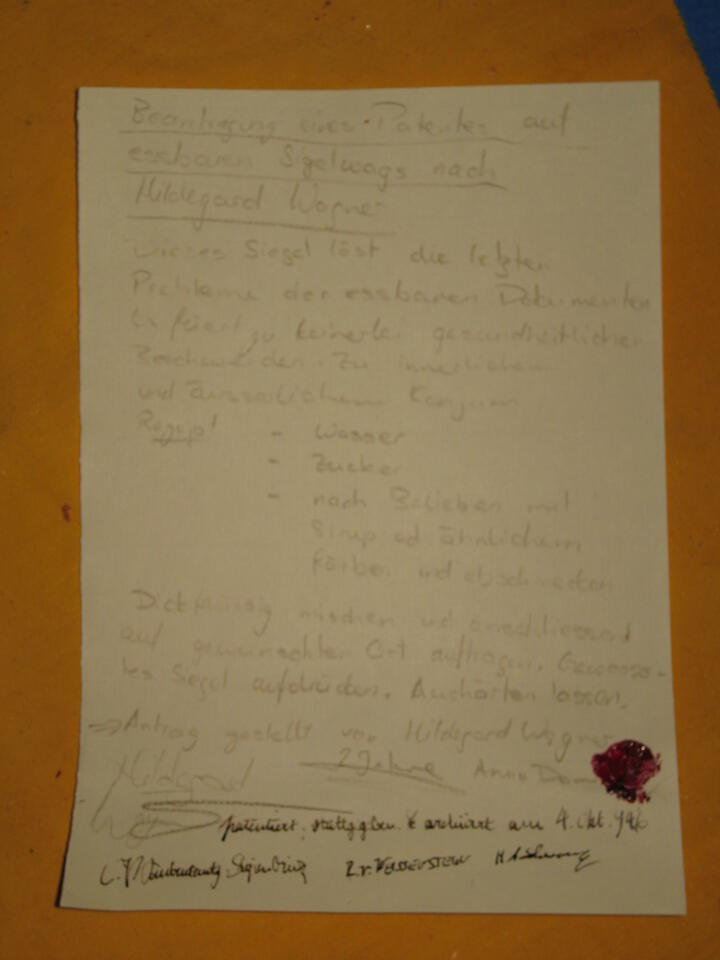 Beantragung eines Patentes auf
essbaren Sigelwags nach
Hildegard Wagner
Dieses Siegel löst die letzten
Probleme der essbaren Dokumenten
Es führt zu keinerlei gesundheitlichen
Beschwerden. Zu innerlichem
und äusserlichem Konsum
Rezept - Wasser
- Zucker
- nach Belieben mit
Sirup od ähnlichem
färben und abschmecken
Dickflüssig mischen und anschliessend
auf gewünschten Ort auftragen.
Siegel aufdrücken. Aushärten lassen.
⇒ Antrag gestellt von Hildegard Wagner
Hildegard 2 Jahre Anno
patentiert, stattggben. & archiviert am 4. Okt.
Z.v. WEISSENSTEIN